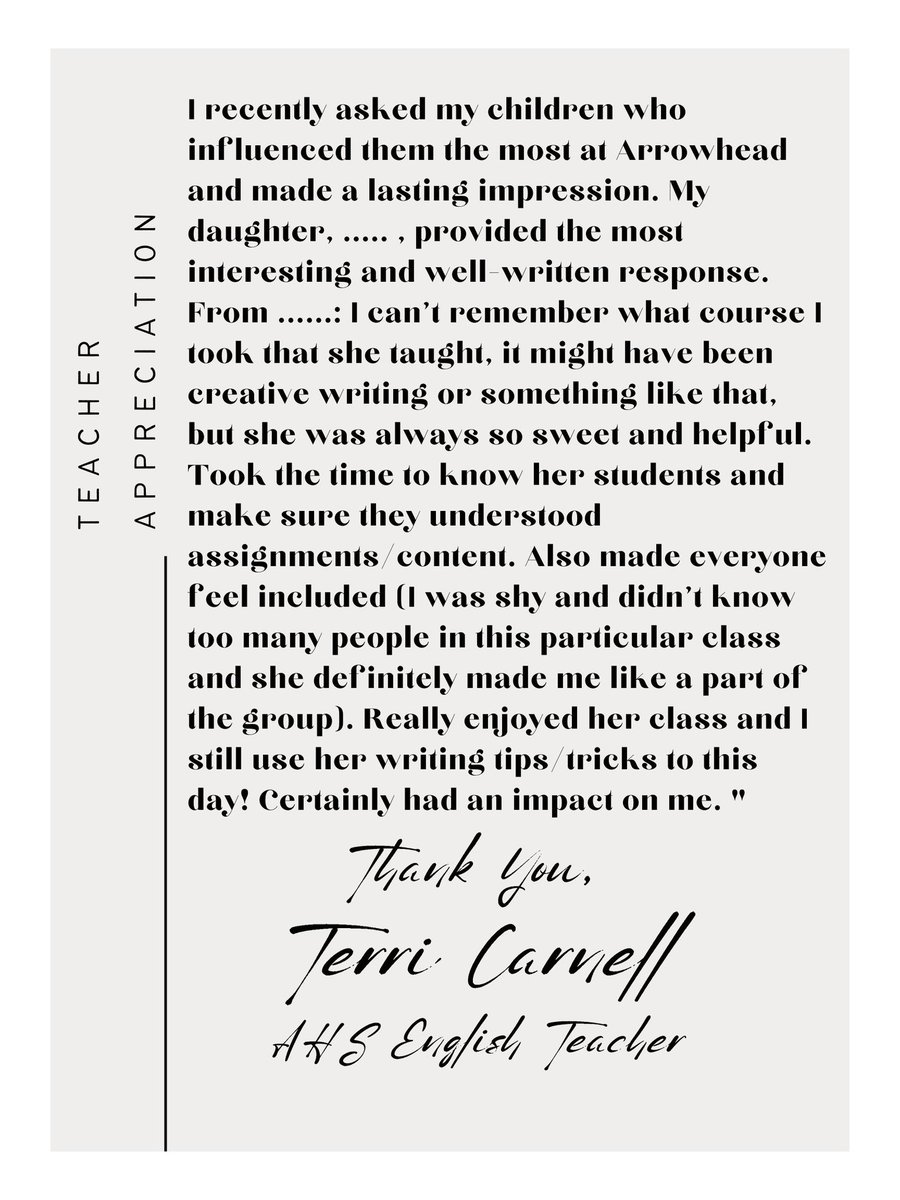 TEACHER
APPRECIATION
I recently asked my children who
influenced them the most at Arrowhead
and made a lasting impression. My
daughter, ..... , provided the most
interesting and well-written response.
From ......: I can't remember what course I
took that she taught, it might have been
creative writing or something like that,
but she was always so sweet and helpful.
Took the time to know her students and
make sure they understood
assignments/content. Also made everyone
feel included (I was shy and didn't know
too many people in this particular class
and she definitely made me like a part of
the group). Really enjoyed her class and I
still use her writing tips/tricks to this
day! Certainly had an impact on me. "
Thank You,
Terri Carnell
AHS English Teacher